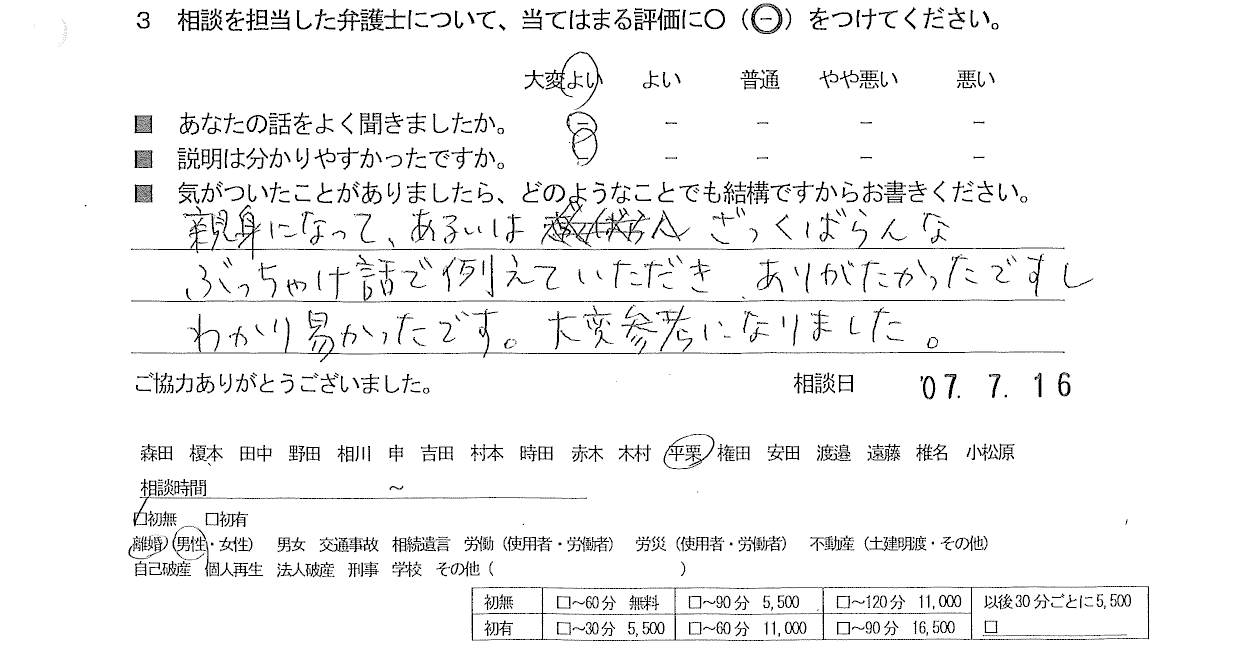 3 相談を担当した弁護士について、当てはまる評価に○(㊀)をつけてください。
大変よい よい 普通 やや悪い 悪い
■ あなたの話をよく聞きましたか。 － － － － －
■ 説明は分かりやすかったですか。 － － － － －
■ 気がついたことがありましたら、どのようなことでも結構ですからお書きください。
親身になって、あるいは ざっくばらんな
ぶっちゃけ話で例えていただき、ありがたかったですし
わかり易かったです。大変参考になりました。
ご協力ありがとうございました。 相談日 '07. 7. 16
森田 榎本 田中 野田 相川 申 吉田 村本 時田 赤木 木村 平栗 権田 安田 渡邉 遠藤 椎名 小松原
相談時間 ～
□初無 □初有
離婚(男性・女性) 男女 交通事故 相続遺言 労働(使用者・労働者) 労災(使用者・労働者) 不動産(土建明渡・その他)
自己破産 個人再生 法人破産 刑事 学校 その他( )
初無 □～60分 無料 □～90分 5,500 □～120分 11,000 以後30分ごとに5,500
初有 □～30分 5,500 □～60分 11,000 □～90分 16,500 □